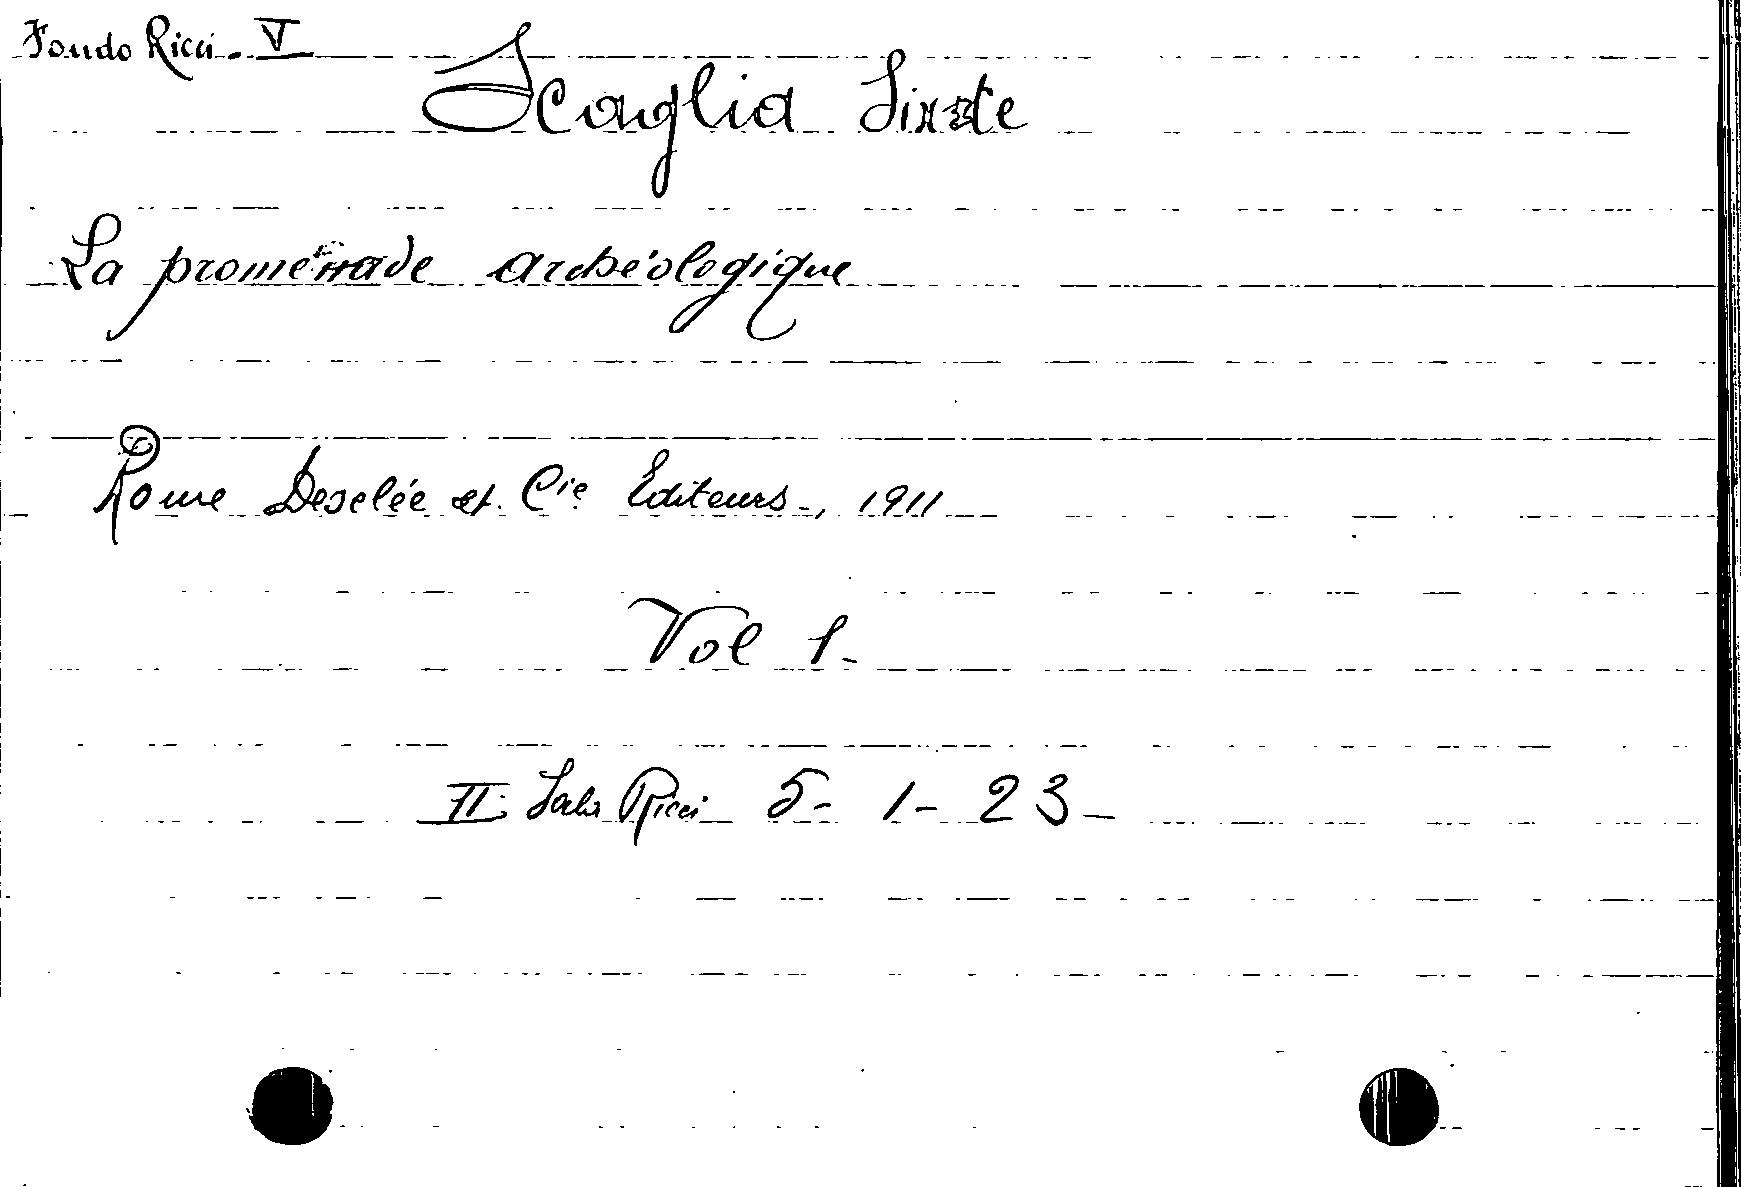 Fondo Ricci - V
Scaglia Sixte
La promenade archéologique
Rome Desclée et. Cie Editeurs -, 1911
Vol 1-
II Sala Ricci 5- 1- 23-